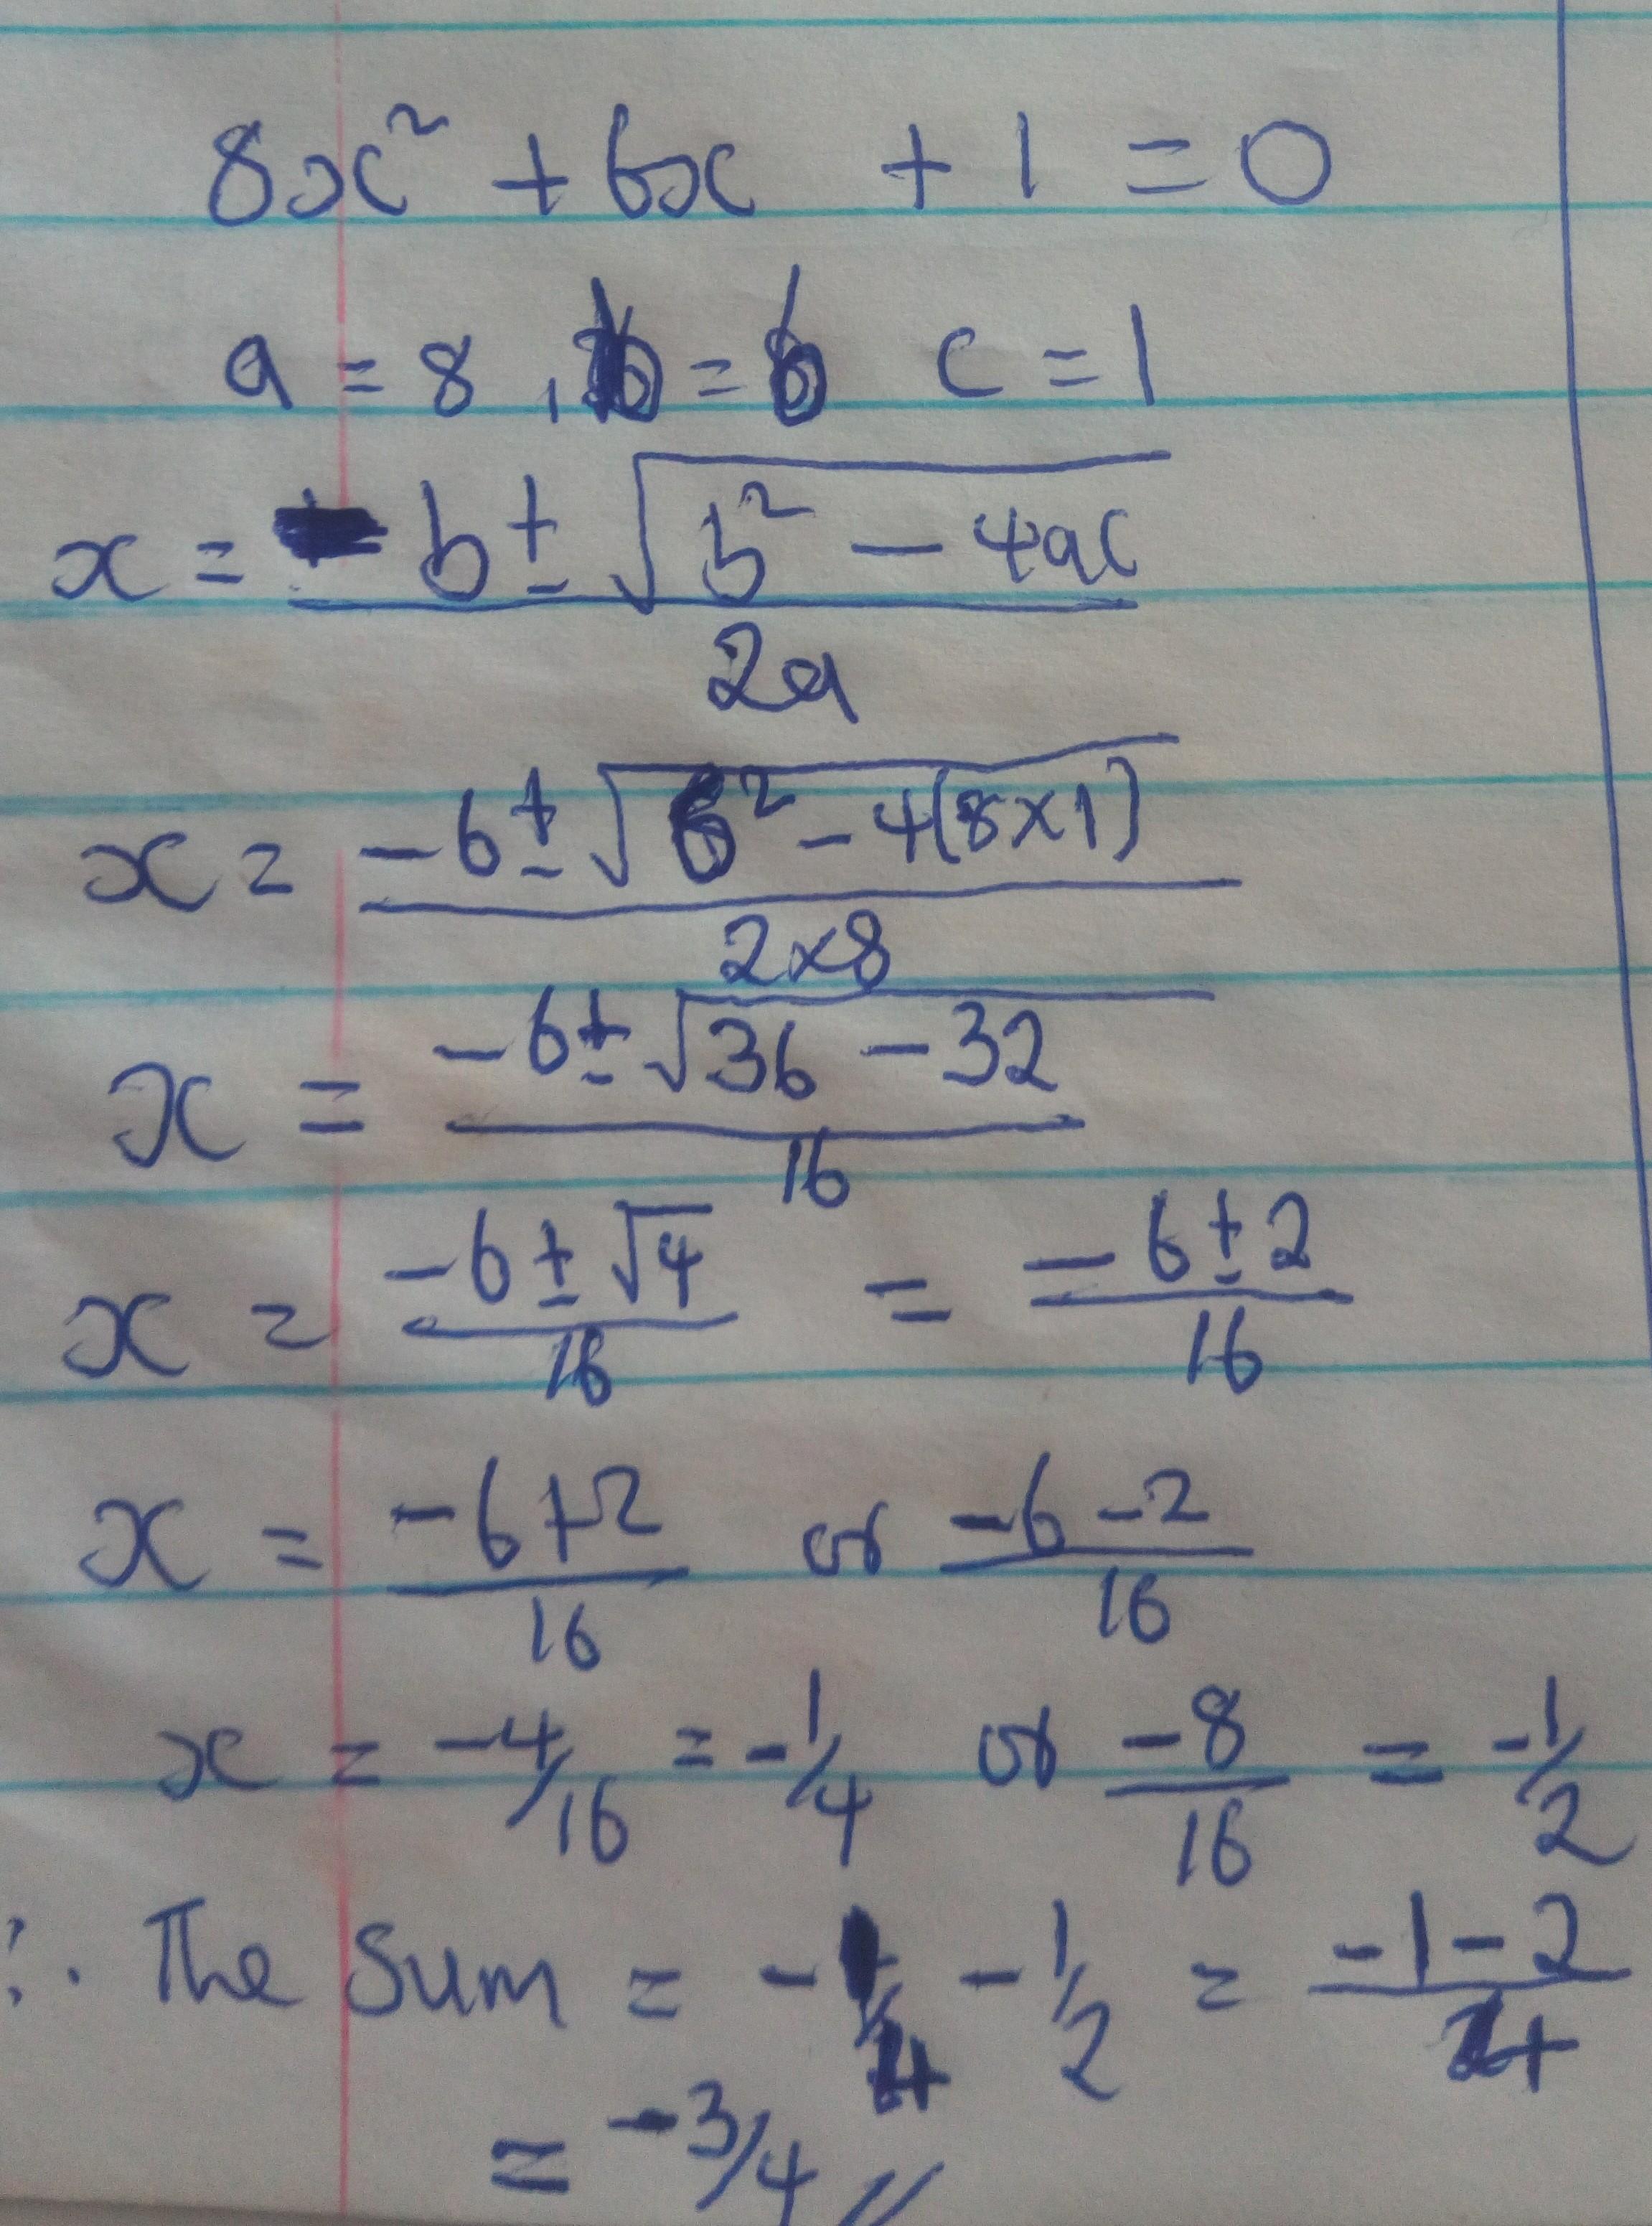 8x² + 6x + 1 = 0
a = 8, b = 6 c = 1
x = - b ± √(b² - 4ac) / 2a
x = -6 ± √(6² - 4(8×1)) / 2×8
x = -6 ± √(36 - 32) / 16
x = -6 ± √4 / 16 = -6 ± 2 / 16
x = -6+2 / 16 or -6-2 / 16
x = -4/16 = -1/4 or -8/16 = -1/2
∴ The sum = -1/4 - 1/2 = -1-2 / 4
= -3/4 //